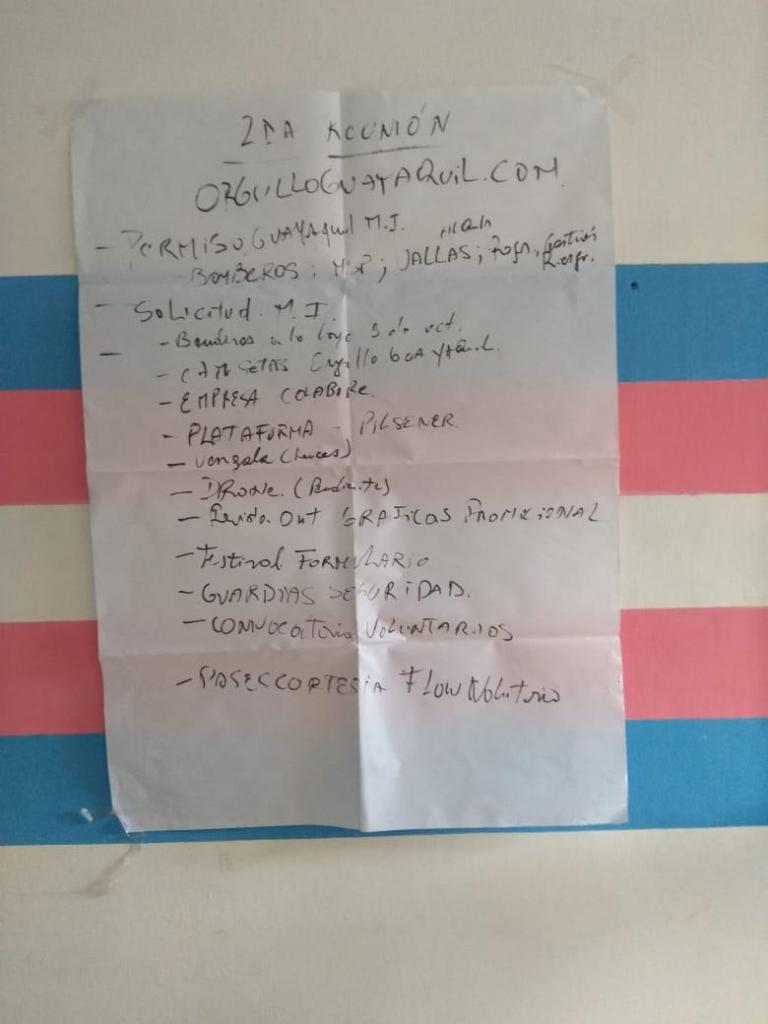 2DA REUNIÓN
ORGULLOGUAYAQUIL.COM.
- PERMISO GUAYAQUIL M.I.
- BOMBEROS; MSP; VALLAS; Gestión
- Solicitud. M.I.
- Banderas a lo largo 9 de oct.
- CAMISETAS Orgullo GUAYAQUIL.
- EMPRESA COLABORE.
- PLATAFORMA - PILSENER.
- vengala (luces)
- DRONE. (Pendiente)
- Revista OUT GRAFICAS PROMOCIONAL
- Festival FORMULARIO
- GUARDIAS SEGURIDAD.
- CONVOCATORIA VOLUNTARIOS
- PASES CORTESIA FLOW